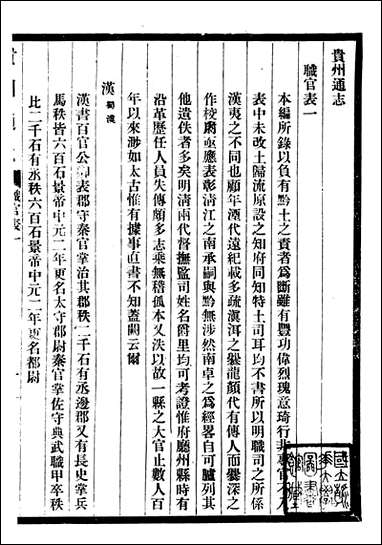 貴州通志
職官表一
本編所錄以負有黔土之責者爲斷雖有豐功偉烈瑰意琦行非
表中未改土歸流原設之知府同知特土司耳均不書所以明職司之所係
漢夷之不同也顧年湮代遠紀載多疏滇洱之爨龍顏代有傳人而爨深之
作校尉亟應表彰清江之南承嗣與黔無涉然南卓之爲經畧自可臚列其
他遺佚者多矣明清兩代督撫監司姓名爵里均可考證惟府廳州縣時有
沿革歷任人員失傳頗多志乘無稽孤本又泆以故一縣之大官止數人百
年以來渺如太古惟有據事直書不知蓋闕云爾
漢 蜀漢
漢書百官公卿表郡守秦官掌治其郡秩二千石有丞邊郡又有長史掌兵
馬秩皆六百石景帝中元二年更名太守郡尉秦官掌佐守典武職甲卒秩
比二千石有丞秩六百石景帝中元二年更名都尉
職官表一